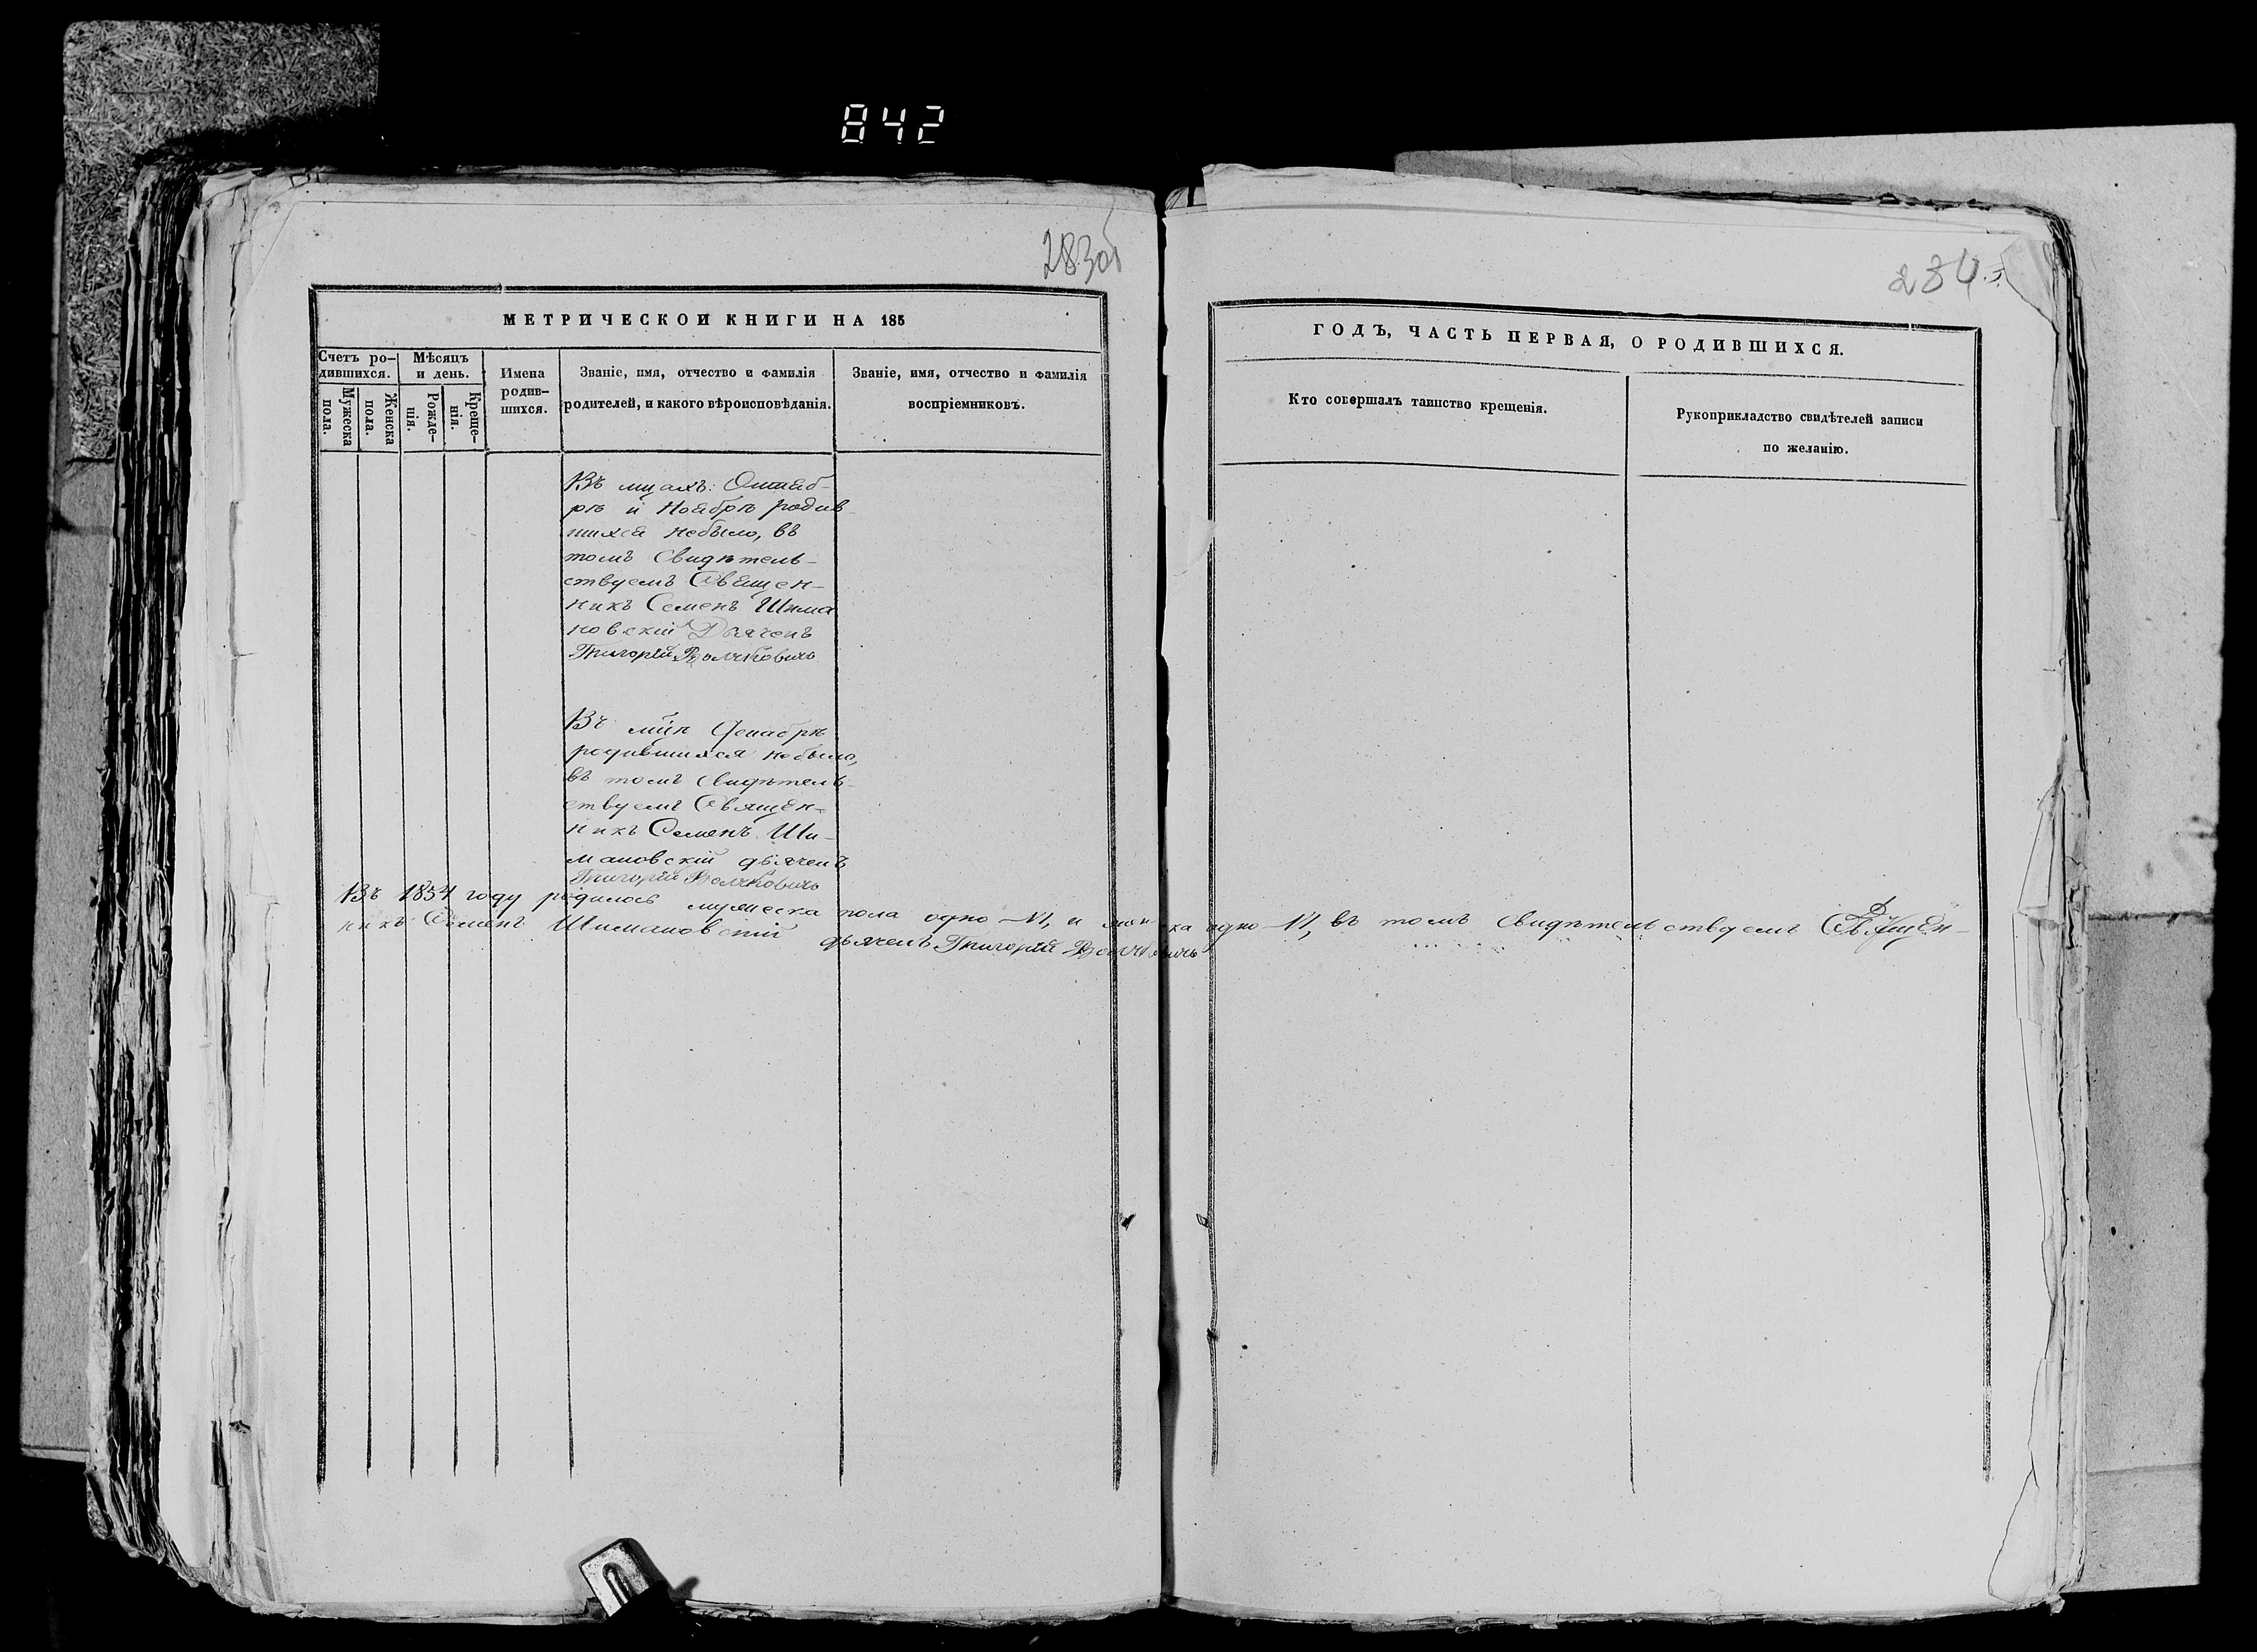 842
283об
284
МЕТРИЧЕСКОЙ КНИГИ НА 185
ГОДЪ, ЧАСТЬ ПЕРВАЯ, О РОДИВШИХСЯ.
Счетъ ро-
дившихся.
Мужеска
пола.
Женска
пола.
Мѣсяцъ
и день.
Рожде-
нія.
Креще-
нія.
Имена
родив-
шихся.
Званіе, имя, отчество и фамилія
родителей, и какого вѣроисповѣданія.
Званіе, имя, отчество и фамилія
воспріемниковъ.
Кто совершалъ таинство крещенія.
Рукоприкладство свидѣтелей записи
по желанію.
Въ мцахъ: Октяб-
рѣ и Ноябрѣ родив
шихся небыло, въ
томъ свидѣтель-
ствуемъ Священ-
никъ Семенъ Шима
новскій Дьячекъ
Григорій Волчковичъ
Въ мцѣ Декабрѣ
родившихся небыло,
въ томъ свидѣтель-
ствуемъ Священ-
никъ Семенъ Ши-
мановскій дьячекъ
Григорій Волчковичъ
Въ 1854 году родилось мужеска пола одно —№1, и женска одно —№1, въ томъ свидѣтельствуемъ Священ-
никъ Семенъ Шимановскій дьячекъ Григорій Волчковичъ